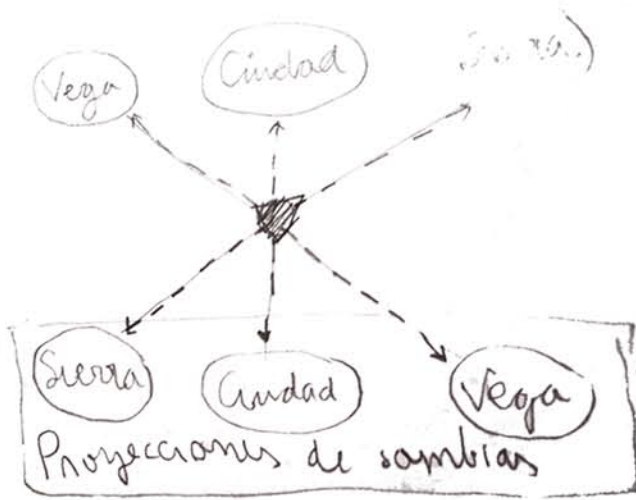 Vega Ciudad
Sierra Ciudad Vega
Proyecciones de sombras